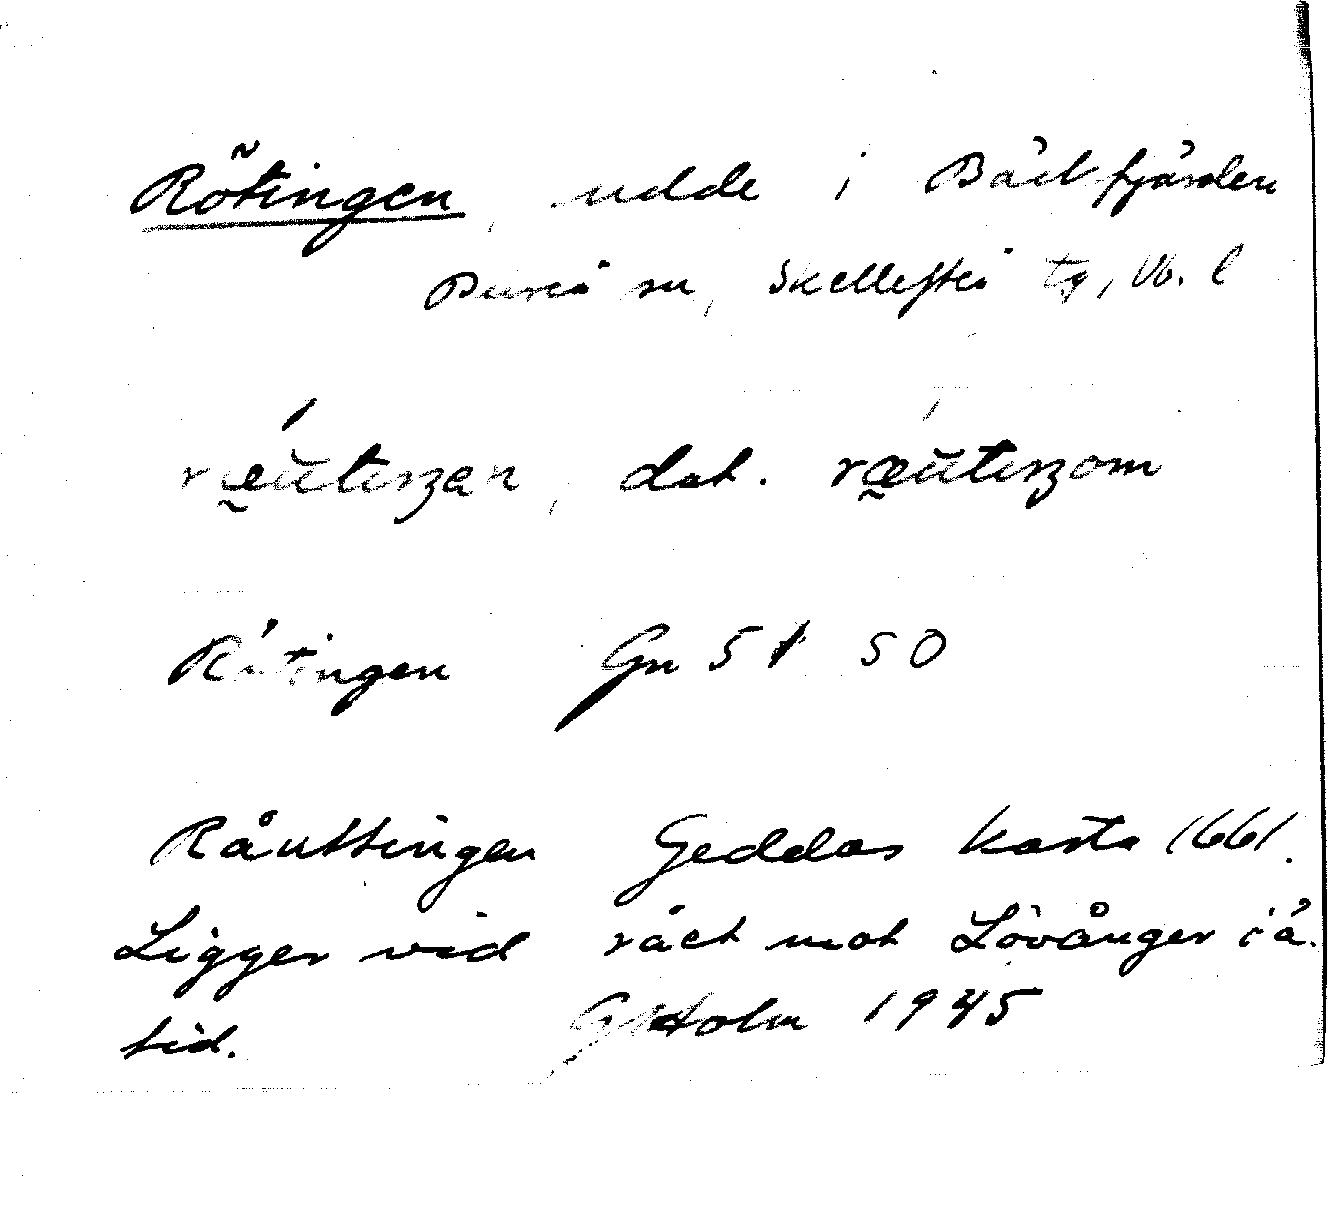 Rötingen, udde i Bäckfjärden
Bureå sn, Skellefteå tg, Vb. l
ræutiŋen, dat. ræutiŋom
Rötingen Gn 51 SO
Råuttingen Geddas karta 1661.
Ligger vid rået mot Lövånger i ä.
tid. G Holm 1945